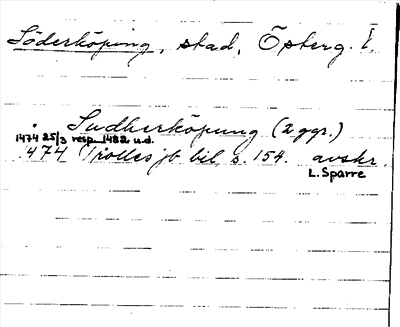 Söderköping, stad, Österg. l.
Sudherköpung (2 ggr.)
1474 25/3 resp. 1482 u.d.
1474 Trolles jb bil. s. 154. avskr.
L. Sparre